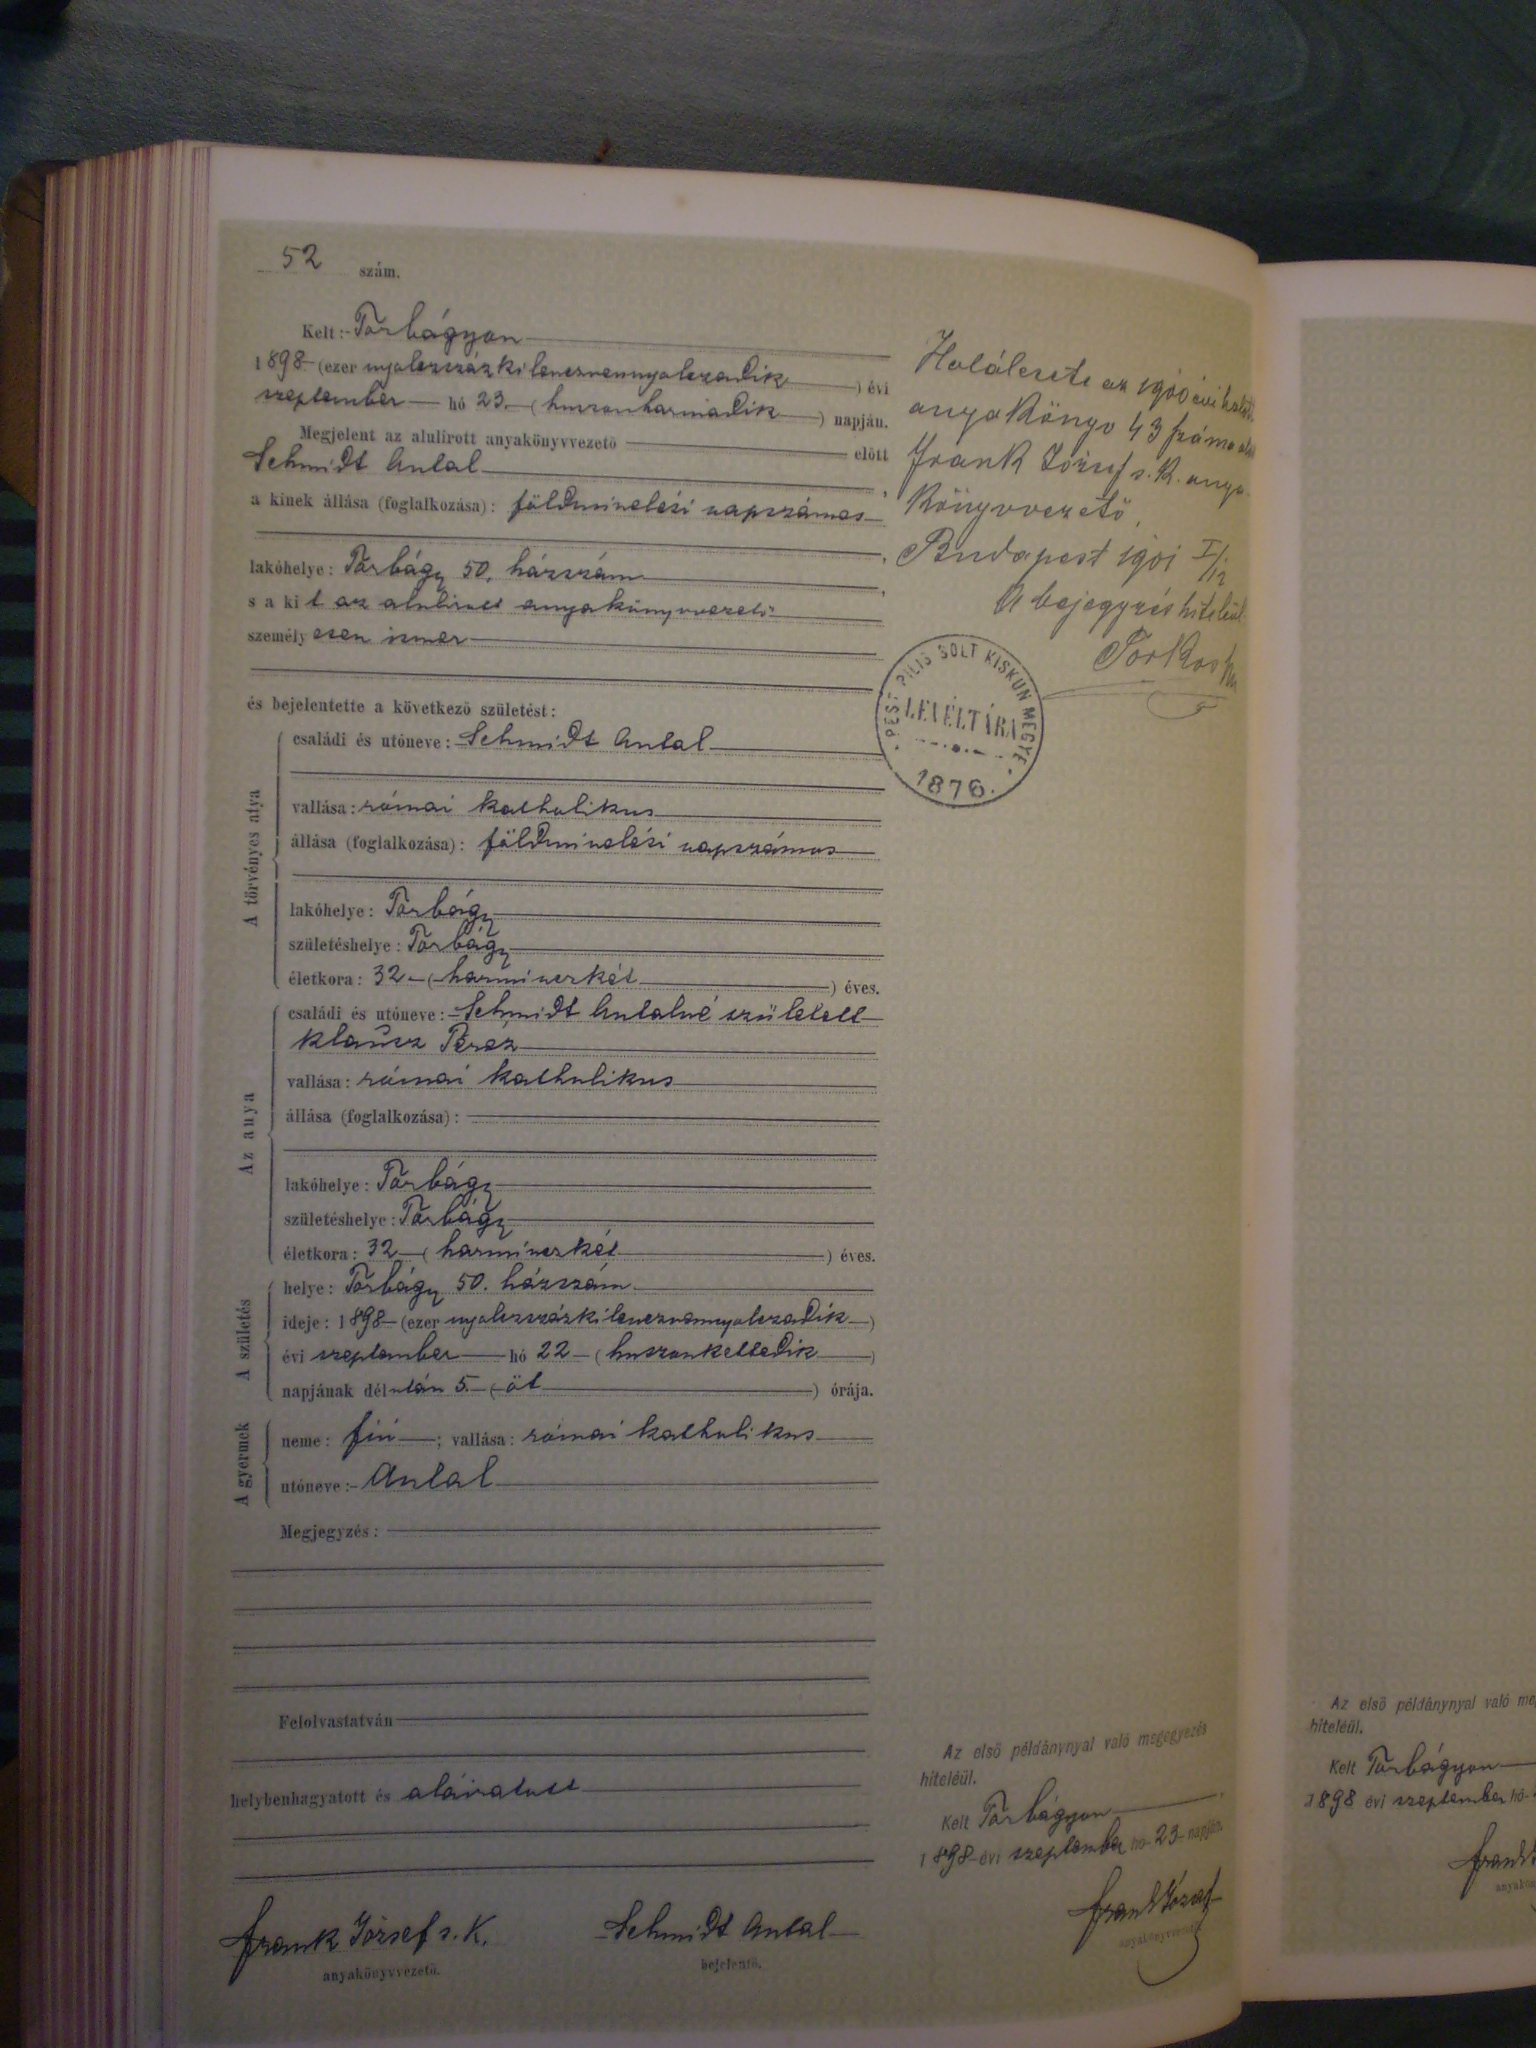 52 szám.
Kelt: Torbágyon
1898 (ezer nyolczszázkilenczvennyolczadik) évi
szeptember hó 23. (huszonharmadik) napján.
Megjelent az alulirott anyakönyvvezető előtt
Schmidt Antal,
a kinek állása (foglalkozása): földmivelési napszámos
,
lakóhelye: Torbágy 50. házszám
,
s a kit az alulirott anyakönyvvezető
személyesen ismer
és bejelentette a következő születést:
A törvényes atya
családi és utóneve: Schmidt Antal
vallása: római katholikus
állása (foglalkozása): földmivelési napszámos
lakóhelye: Torbágy
születéshelye: Torbágy
életkora: 32 (harminczkét) éves.
Az anya
családi és utóneve: Schmidt Antalné született
Klausz Teréz
vallása: római katholikus
állása (foglalkozása):
lakóhelye: Torbágy
születéshelye: Torbágy
életkora: 32 (harminczkét) éves.
A születés
helye: Torbágy 50. házszám
ideje: 1898 (ezer nyolczszázkilenczvennyolczadik)
évi szeptember hó 22 (huszonkettedik)
napjának délután 5. (öt) órája.
A gyermek
neme: fiú; vallása: római katholikus
utóneve: Antal
Megjegyzés:
Felolvastatván
helybenhagyatott és aláiratott
Frank József s. k.
anyakönyvvezető.
Schmidt Antal
bejelentő.
Halálesete az 1900 évi halotti
anyakönyv 43 száma alatt
Frank József s. k. anya-
könyvvezető,
Budapest 1901 I/12
A bejegyzés hiteléül
PEST PILIS SOLT KISKUN MEGYE
LEVÉLTÁRA
1876.
Az első példánynyal való megegyezés
hiteléül.
Kelt Torbágyon,
1898 évi szeptember hó 23 napján.
Frank József
anyakönyvvezető
Az első példánynyal való
hiteléül.
Kelt Torbágyon
1898 évi szeptember hó
Frank